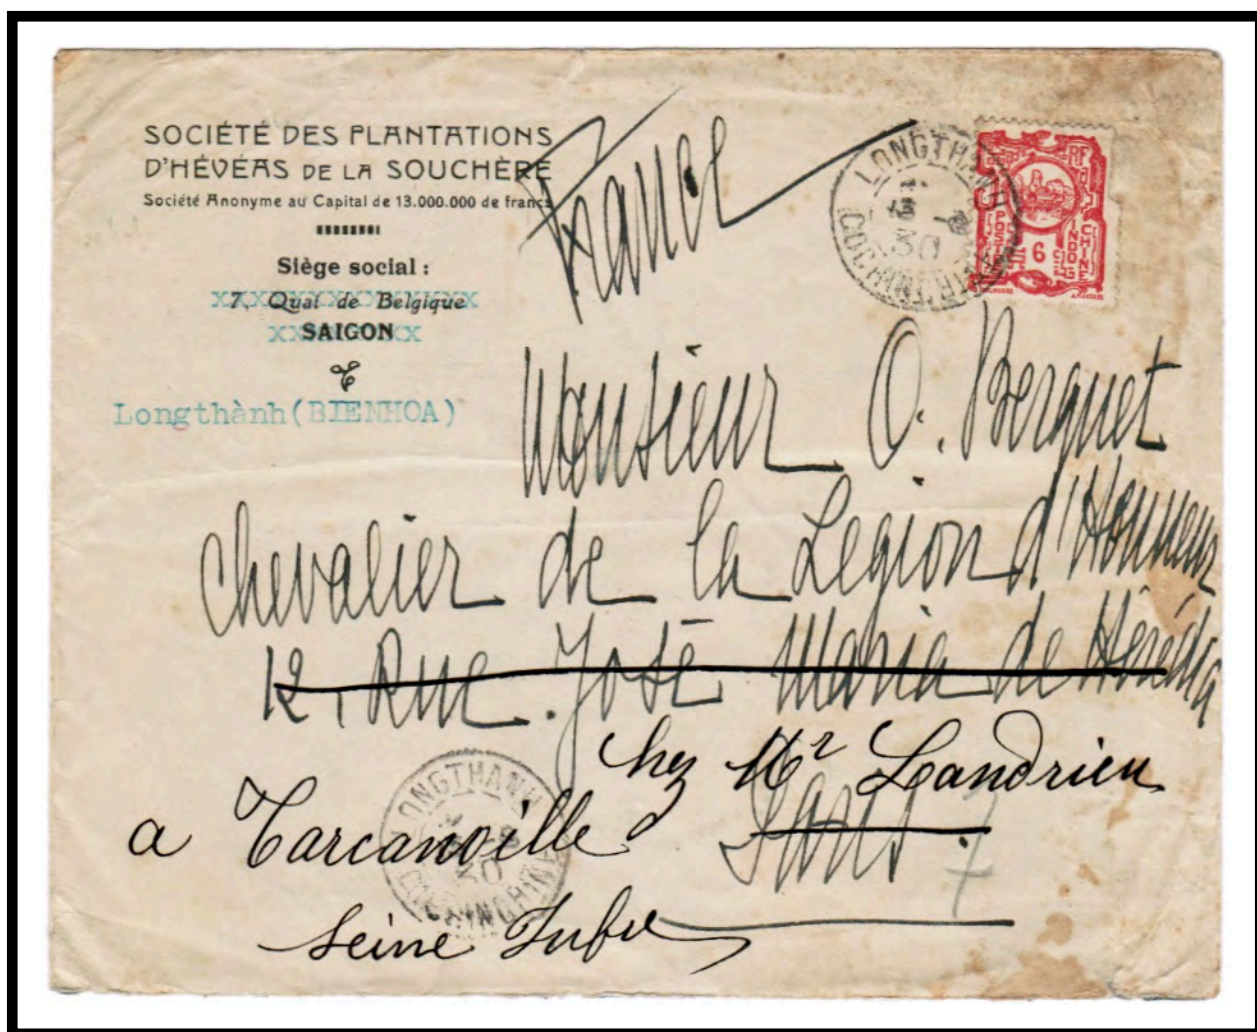 SOCIÉTÉ DES PLANTATIONS
D'HÉVÉAS DE LA SOUCHÈRE
Société Anonyme au Capital de 13.000.000 de francs
Siège social :
7, Quai de Belgique
XXXXXXXXXXXXXXXX
SAIGON
Longthành(BIENHOA)
France
LONGTHANH
30
COCHINCHINE
RF
POSTES
INDO
CHINE
6
Monsieur O. Berquet
Chevalier de la Legion d'Honneur
12, Rue José Maria de Hérédia
Paris 7
chez Mr Landrieu
a Tarcanville
Seine Infre
LONGTHANH
30
COCHINCHINE